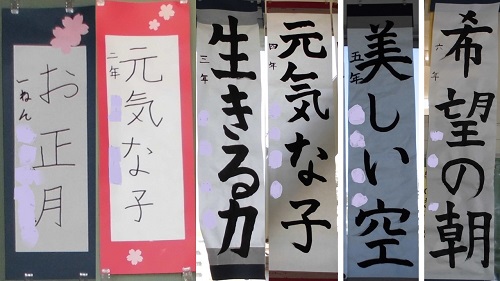 お正月
一ねん
元気な子
二年
生きる力
三年
元気な子
四年
美しい空
五年
希望の朝
六年